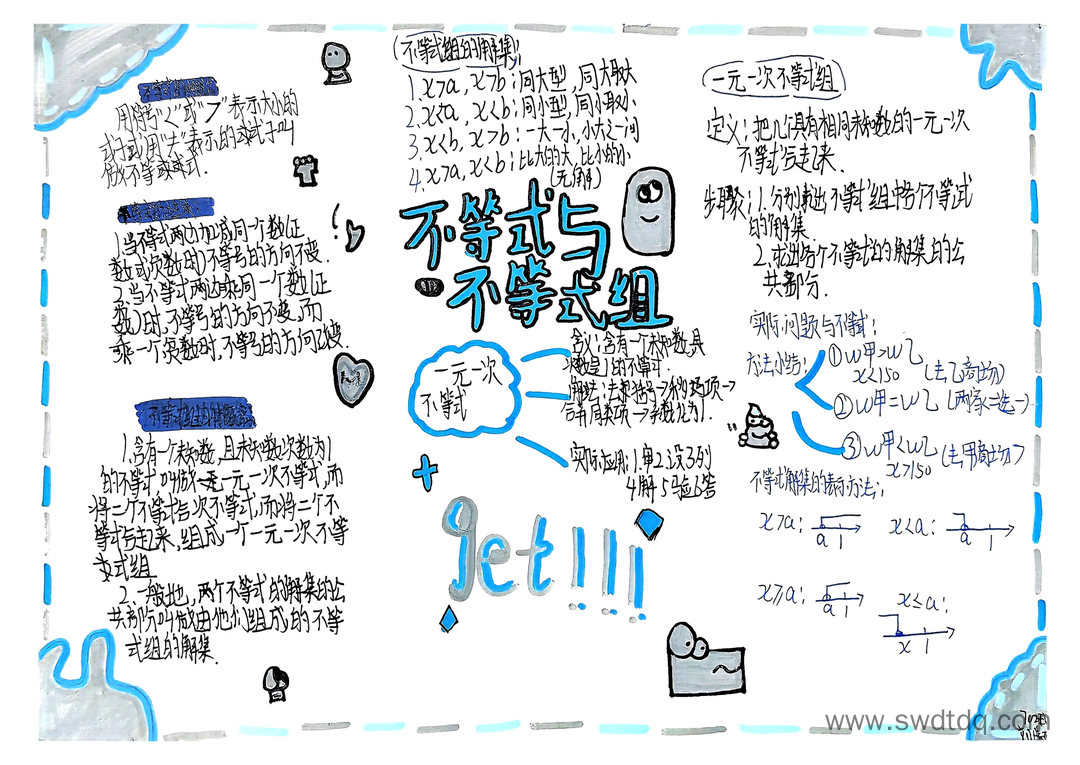 不等式与
不等式组
用符号“<”或“>”表示大小的
式子或用“≠”表示的式子叫
做不等式
1.当不等式两边加减同一个数(正
数或次数时)不等号的方向不变.
2.当不等式两边乘同一个数(正
数)时,不等号的方向不变,而
乘一个负数时,不等号的方向改变
1.含有一个未知数,且未知数次数为1
的不等式叫做一元一次不等式,而
将二个不等式合次不等式,而将二个不
等式合起来,组成一个一元一次不等
式组
2.一般地,两个不等式的解集的公
共部分叫做由他们组成的不等
式组的解集.
(不等式组的解集)
1.x>a,x>b;同大型,同大取大
2.x<a,x<b;同小型,同小取小
3.x<b,x>b;一大一小,小大之间
4.x>a,x<b;比大的大,比小的小
(无解)
一元一次
不等式
含义:含有一个未知数,具
次数是1的不等式.
解法:去括号→移项→
合并同类项→系数化为1.
实际应用:1.审2.设3.列
4.解5.验6.答
get!!!
一元一次不等式组
定义:把几个具有相同未知数的一元一次
不等式合起来.
步骤:1.分别求出不等式组中各个不等式
的解集
2.求出各个不等式的解集的公
共部分.
实际问题与不等式:
方法小结:
①W甲>W乙
x<150(去乙商场)
②W甲=W乙(两家二选一)
③W甲<W乙
x>150(去甲商场)
不等式解集的表示方法:
x>a: a 1
x<a: a 1
x≥a: a 1
x≤a: x 1
www.swdtdq.com